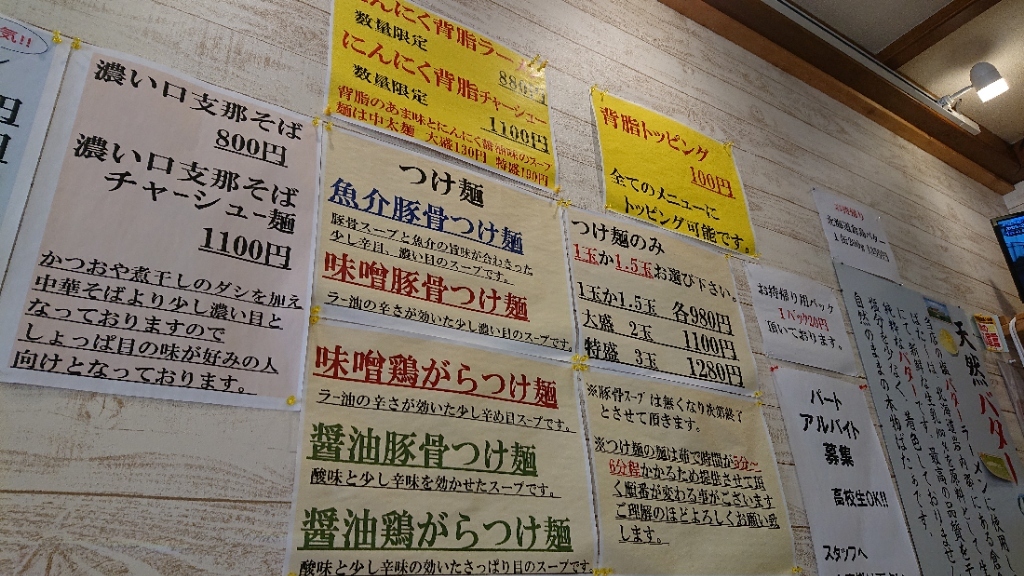 気!!
円
円
濃い口支那そば
800円
濃い口支那そば
チャーシュー麺
1100円
かつおや煮干しのダシを加え
中華そばより少し濃い目と
なっておりますので
しょっぱ目の味が好みの人
向けとなっております。
にんにく背脂ラー
数量限定
880円
にんにく背脂チャーシュー
数量限定
1100円
背脂のあま味とにんにく醤油味のスープ
麺は中太麺 大盛130円 特盛190円
つけ麺
魚介豚骨つけ麺
豚骨スープと魚介の旨味が合わさった
少し辛目、濃い目のスープです。
味噌豚骨つけ麺
ラー油の辛さが効いた少し濃い目のスープです。
味噌鶏がらつけ麺
ラー油の辛さが効いた少し辛め目スープです。
醤油豚骨つけ麺
酸味と少し辛味を効かせたスープです。
醤油鶏がらつけ麺
酸味と少し辛味の効いたさっぱり目のスープです。
背脂トッピング
100円
全てのメニューに
トッピング可能です。
つけ麺のみ
1玉か1.5玉お選び下さい。
1玉か1.5玉 各980円
大盛 2玉 1100円
特盛 3玉 1280円
※豚骨スープは無くなり次第終了
とさせて頂きます。
※つけ麺の麺は茹で時間が5分〜
6分程かかるため提供させて頂
く順番が変わる事がございます
ご理解のほどよろしくお願い致
します。
お持帰り
北海道
お持帰り用パック
1パック20円
頂いております。
パート
アルバイト
募集
高校生OK!!
スタッフへ
天然バター